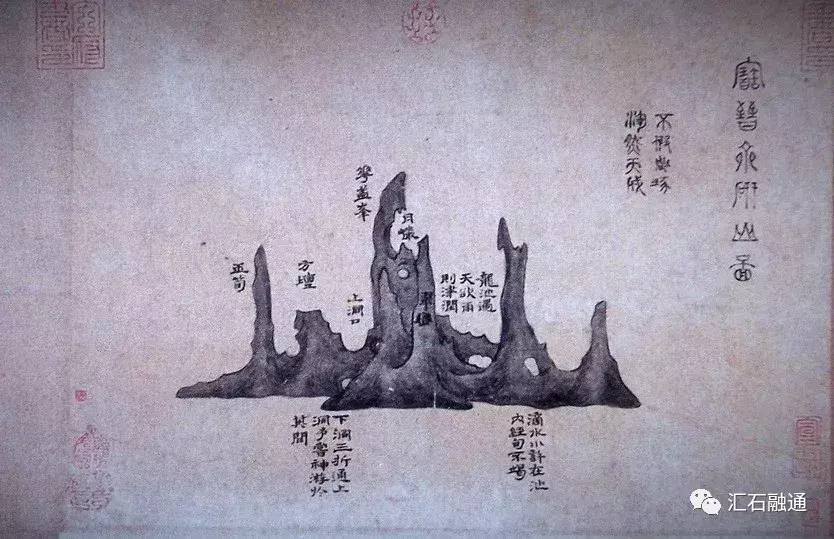 寶晉齋研山圖
不假雕琢
渾然天成
龍池遇
天欲雨
則津潤
月巖
華蓋峯
翠巒
上洞口
方壇
玉筍
滴水小許在池
內經旬不竭
下洞三折通上
洞予嘗神遊於
其間
汇石融通